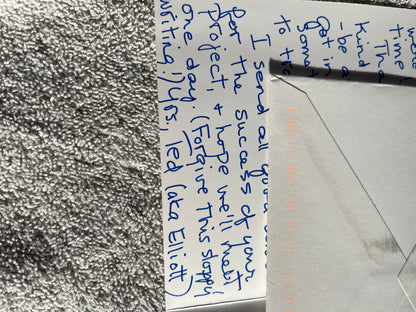 time!
Tha
kind
-be a
get in
somet
to tra
I send all good
for the success of your
project, + hope we'll meet
one day. (Forgive this sloppy
writing!) Yrs, Ted (aka Elliott)